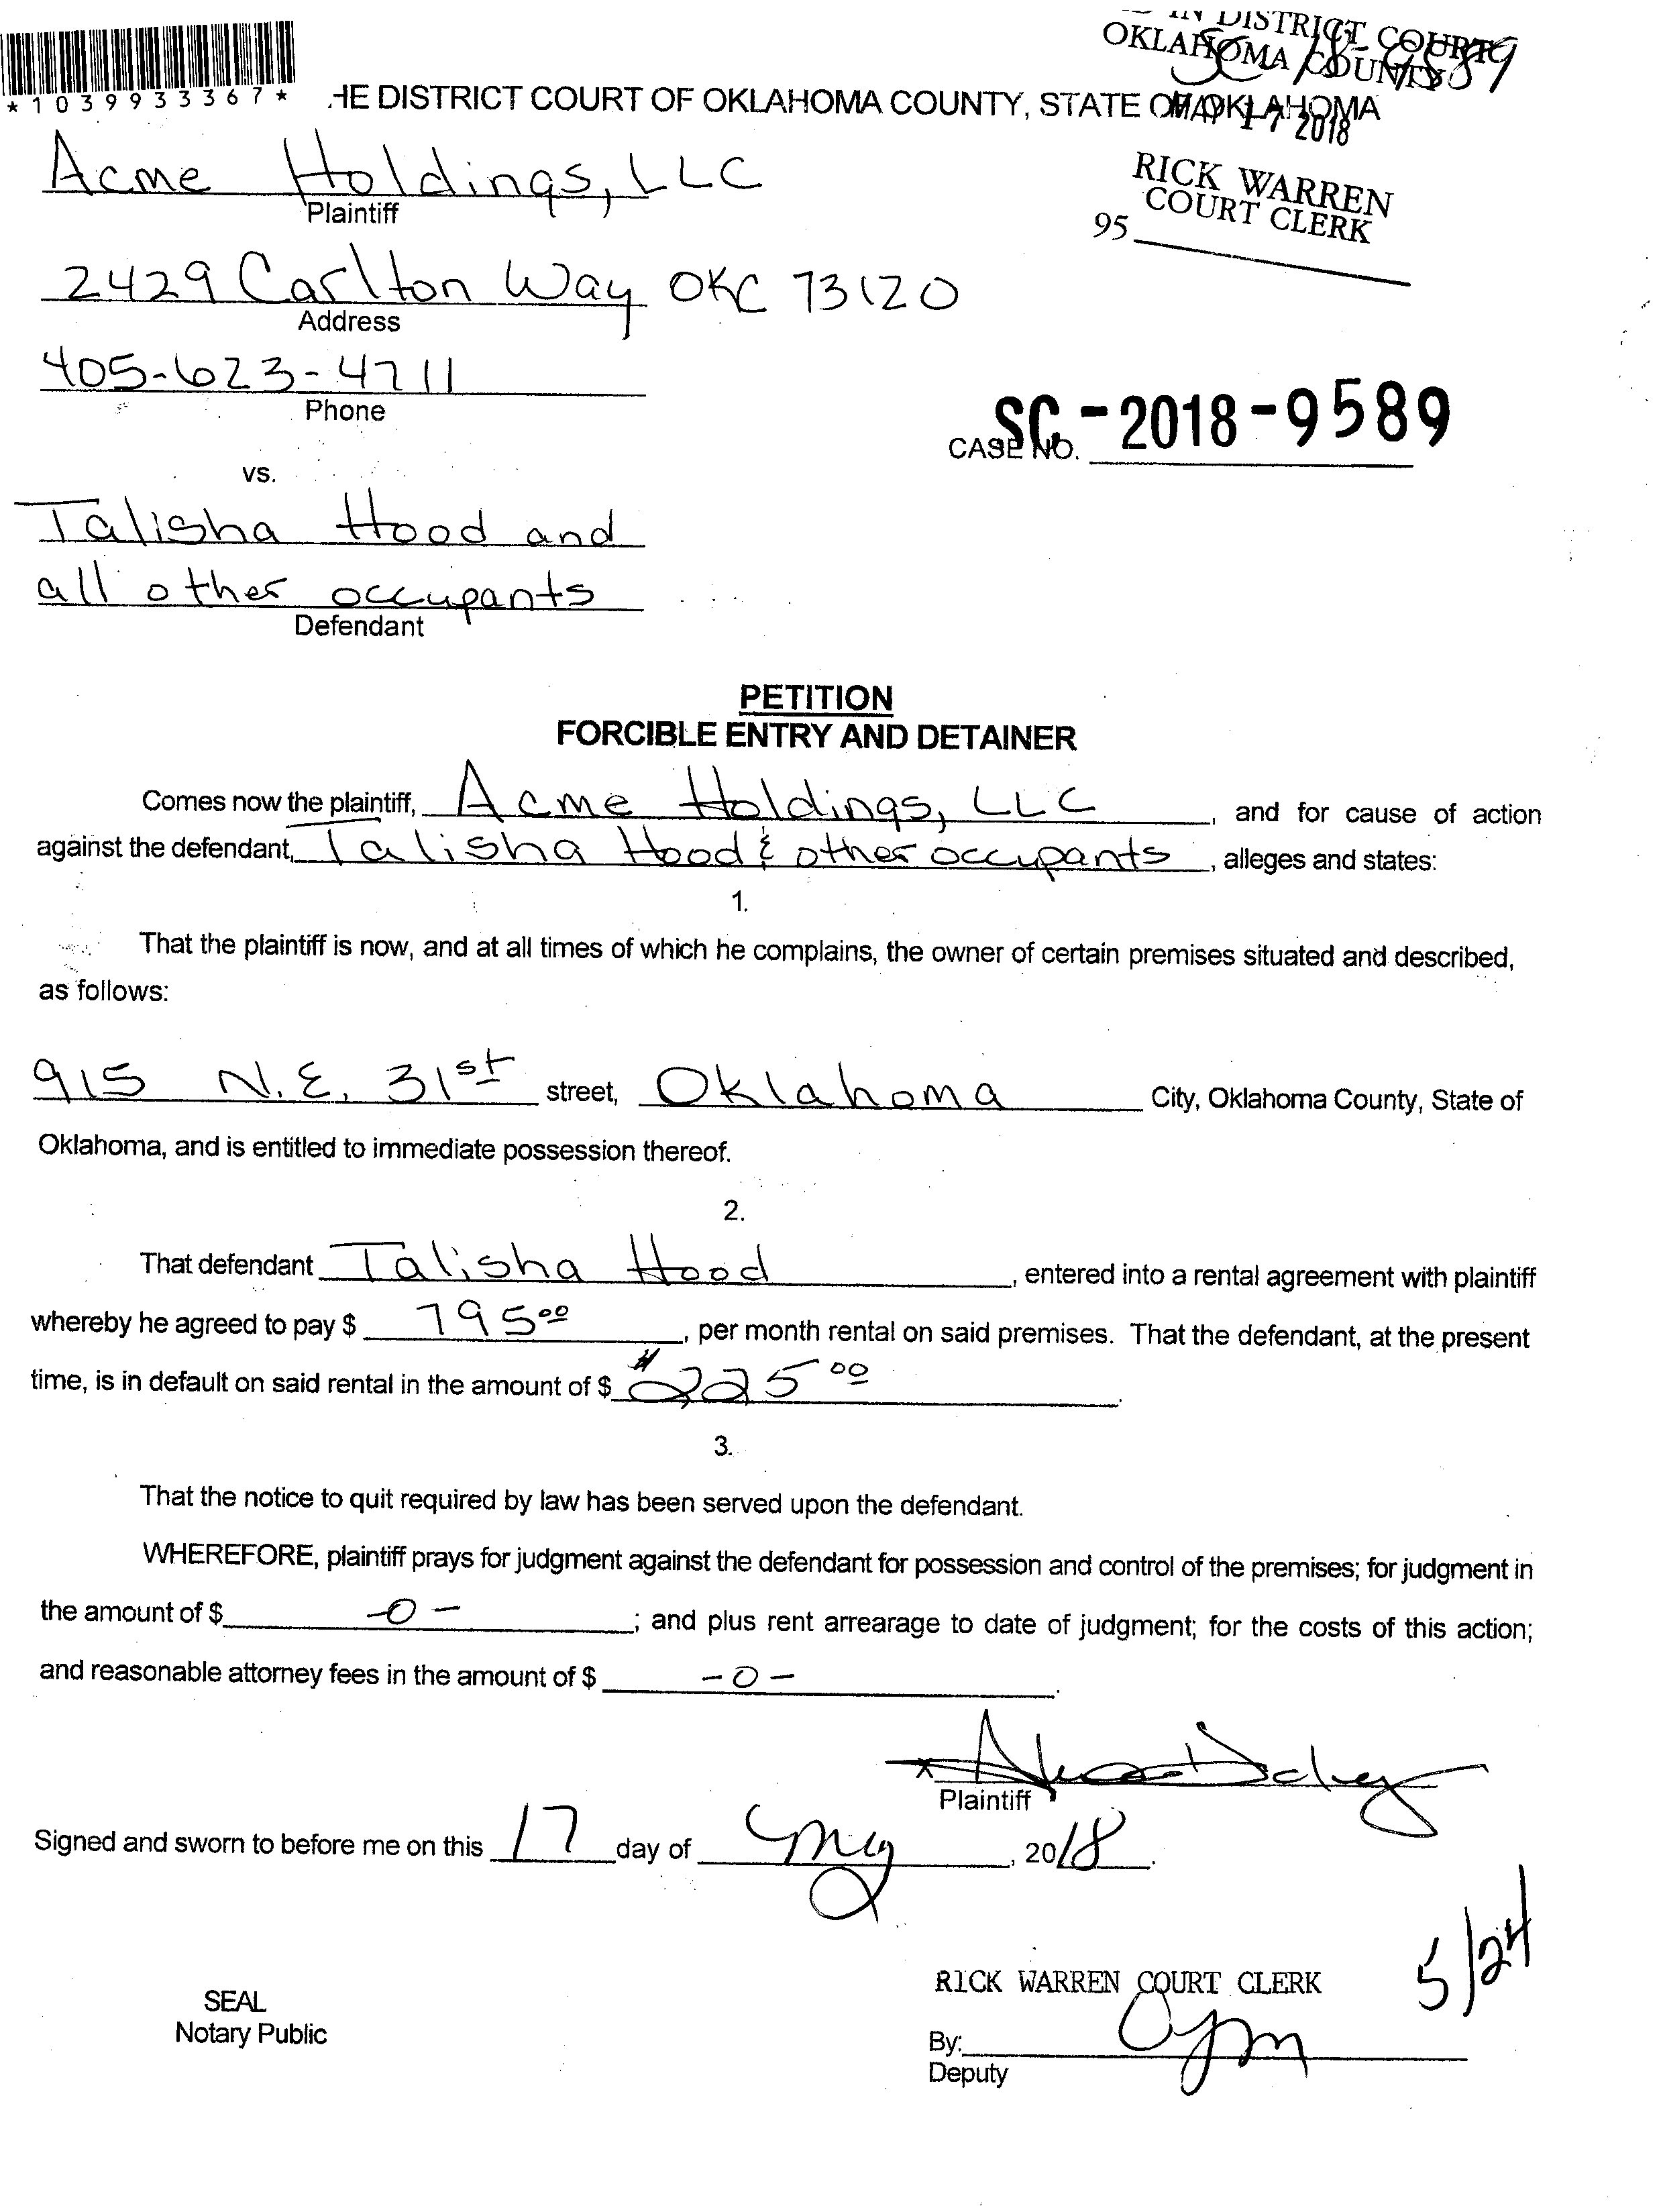 IN DISTRICT COURT
OKLAHOMA COUNTY
SC 18-9589
*1039933367*
HE DISTRICT COURT OF OKLAHOMA COUNTY, STATE OF OKLAHOMA
MAY 17 2018
Acme Holdings, LLC
Plaintiff
RICK WARREN
COURT CLERK
95
2429 Carlton Way OKC 73120
Address
405-623-4711
Phone
CASE NO. SC-2018-9589
vs.
Talisha Hood and
all other occupants
Defendant
PETITION
FORCIBLE ENTRY AND DETAINER
Comes now the plaintiff, Acme Holdings, LLC, and for cause of action
against the defendant, Talisha Hood & other occupants, alleges and states:
1.
That the plaintiff is now, and at all times of which he complains, the owner of certain premises situated and described,
as follows:
915 N.E. 31st street, Oklahoma City, Oklahoma County, State of
Oklahoma, and is entitled to immediate possession thereof.
2.
That defendant Talisha Hood, entered into a rental agreement with plaintiff
whereby he agreed to pay $ 795 00, per month rental on said premises. That the defendant, at the present
time, is in default on said rental in the amount of $ $225 00.
3.
That the notice to quit required by law has been served upon the defendant.
WHEREFORE, plaintiff prays for judgment against the defendant for possession and control of the premises; for judgment in
the amount of $ -0-; and plus rent arrearage to date of judgment; for the costs of this action;
and reasonable attorney fees in the amount of $ -0-.
x
Plaintiff
Signed and sworn to before me on this 17 day of May, 2018.
5/24
RICK WARREN COURT CLERK
SEAL
Notary Public
By:
Deputy